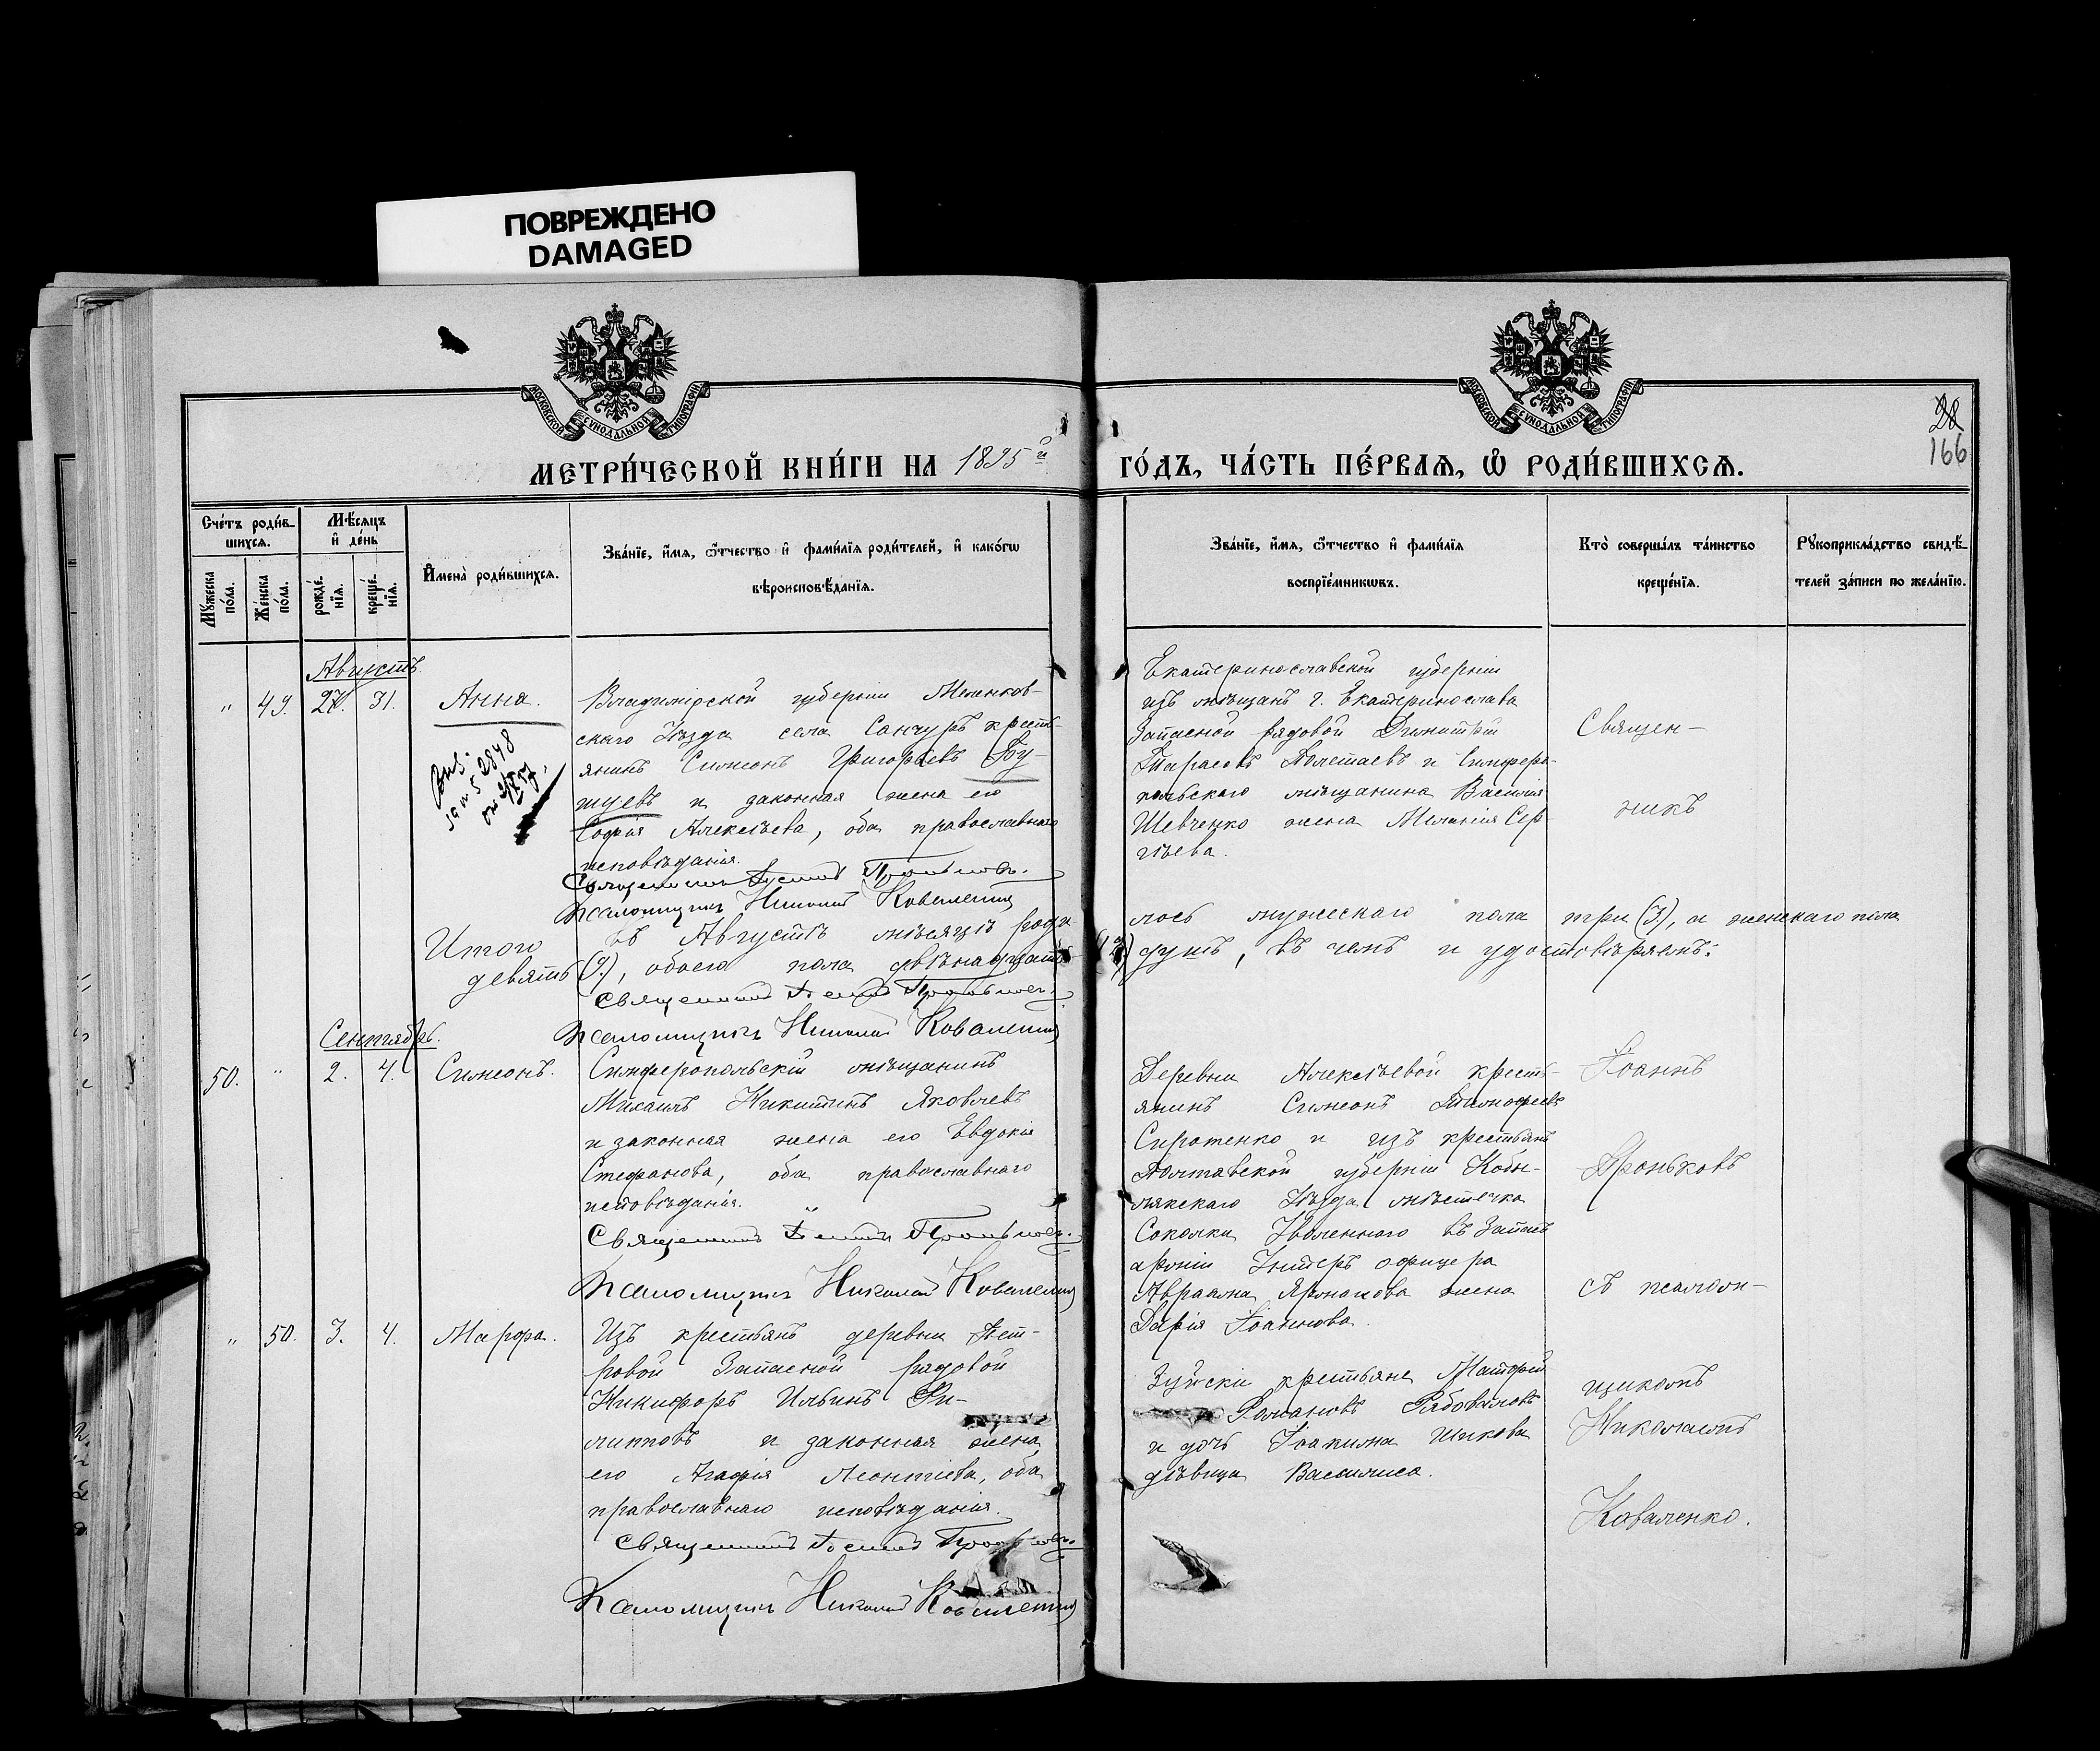 ПОВРЕЖДЕНО
DAMAGED
МОСКОВСКОЙ СѴНОДАЛЬНОЙ ТИПОГРАФІИ
МОСКОВСКОЙ СѴНОДАЛЬНОЙ ТИПОГРАФІИ
28
166
МЕТРИ́ЧЕСКОЙ КНИ́ГИ НА 1895й
ГО́ДЪ, ЧА́СТЬ ПЕ́РВАѦ, Ѽ РОДИ́ВШИХСѦ.
Сче́тъ роди́в-
шихсѧ.
Мꙋ́жеска по́ла.
Же́нска по́ла.
Мѣ́сѧцъ
и҆ де́нь
рожде́нїѧ.
креще́нїѧ.
И҆мена̀ роди́вшихсѧ.
Зва́нїе, и҆́мѧ, ѻ҆́тчество и҆ фами́лїѧ роди́телей, и҆ како́гѡ
вѣроисповѣ́данїѧ.
Зва́нїе, и҆́мѧ, ѻ҆́тчество и҆ фами́лїѧ
воспрїе́мникѡвъ.
Кто̀ соверша́лъ та́инство
креще́нїѧ.
Рꙋкоприкла́дство свидѣ́-
телей за́писи по жела́нїю.
Августъ.
" 49. 27. 31. Анна.
Владимірской губерніи Меленков-
скаго Уѣзда села Санчуръ кресть-
янинъ Симеонъ Григорьевъ Бу-
шуевъ и законная жена его
Софія Алексѣева, оба православнаго
исповѣданія.
Священникъ
Псаломщикъ Николай Коваленко
Екатеринославской губерніи
изъ мѣщанъ г. Екатеринослава
Запасной рядовой Димитрій
Тарасовъ Полетаевъ и Симферо-
польскаго мѣщанина Василія
Шевченко жена Меланія Сер-
гѣева.
Священ-
никъ
Итого въ Августѣ мѣсяцѣ роди-
лось мужескаго пола три (3), а женскаго пола
девять (9), обоего пола двѣнадцать
(12) душъ, въ чемъ и удостовѣряемъ:
Священникъ
Псаломщикъ Николай Коваленко
Сентябрь.
50. " 2. 4. Симеонъ.
Симферопольскій мѣщанинъ
Михаилъ Никитинъ Яковлевъ
и законная жена его Евдокія
Стефанова, оба православнаго
исповѣданія.
Священникъ
Псаломщикъ Николай Коваленко
Деревни Алексѣевой кресть-
янинъ Симеонъ Тимофеевъ
Сиротенко и изъ крестьянъ
Полтавской губерніи Кобы-
лякскаго Уѣзда мѣстечка
Соколки Уволеннаго въ Запасъ
арміи Унтеръ офицера
Авраама Ярмакова жена
Дарія Іоаннова.
Іоаннъ
Проньковъ
съ псалом-
" 50. 3. 4. Марфа.
Изъ крестьянъ деревни Пет-
ровой Запасной рядовой
Никифоръ Ильинъ Фи-
липповъ и законная жена
его Агафія Леонтіева, оба
православнаго исповѣданія.
Священникъ
Псаломщикъ Николай Коваленко
Зуйскіе крестьяне Матфей
Романовъ Рябоваловъ
и дочь Іоакима Шикова
дѣвица Василиса.
щикомъ
Николаемъ
Коваленко.